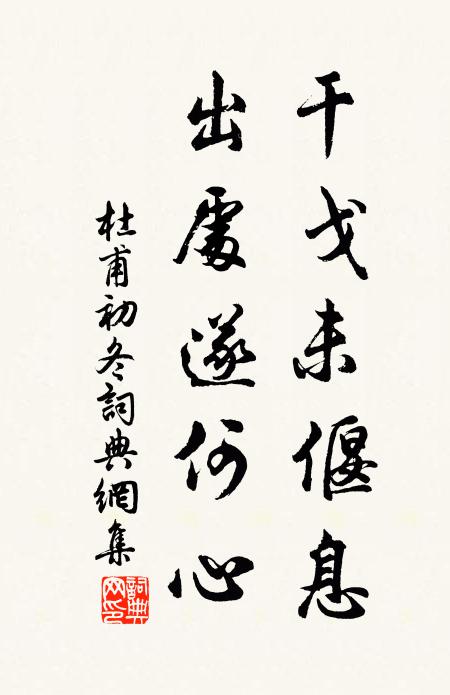 干戈未偃息
出處遂何心
杜甫初冬詞典網集
詞典网印